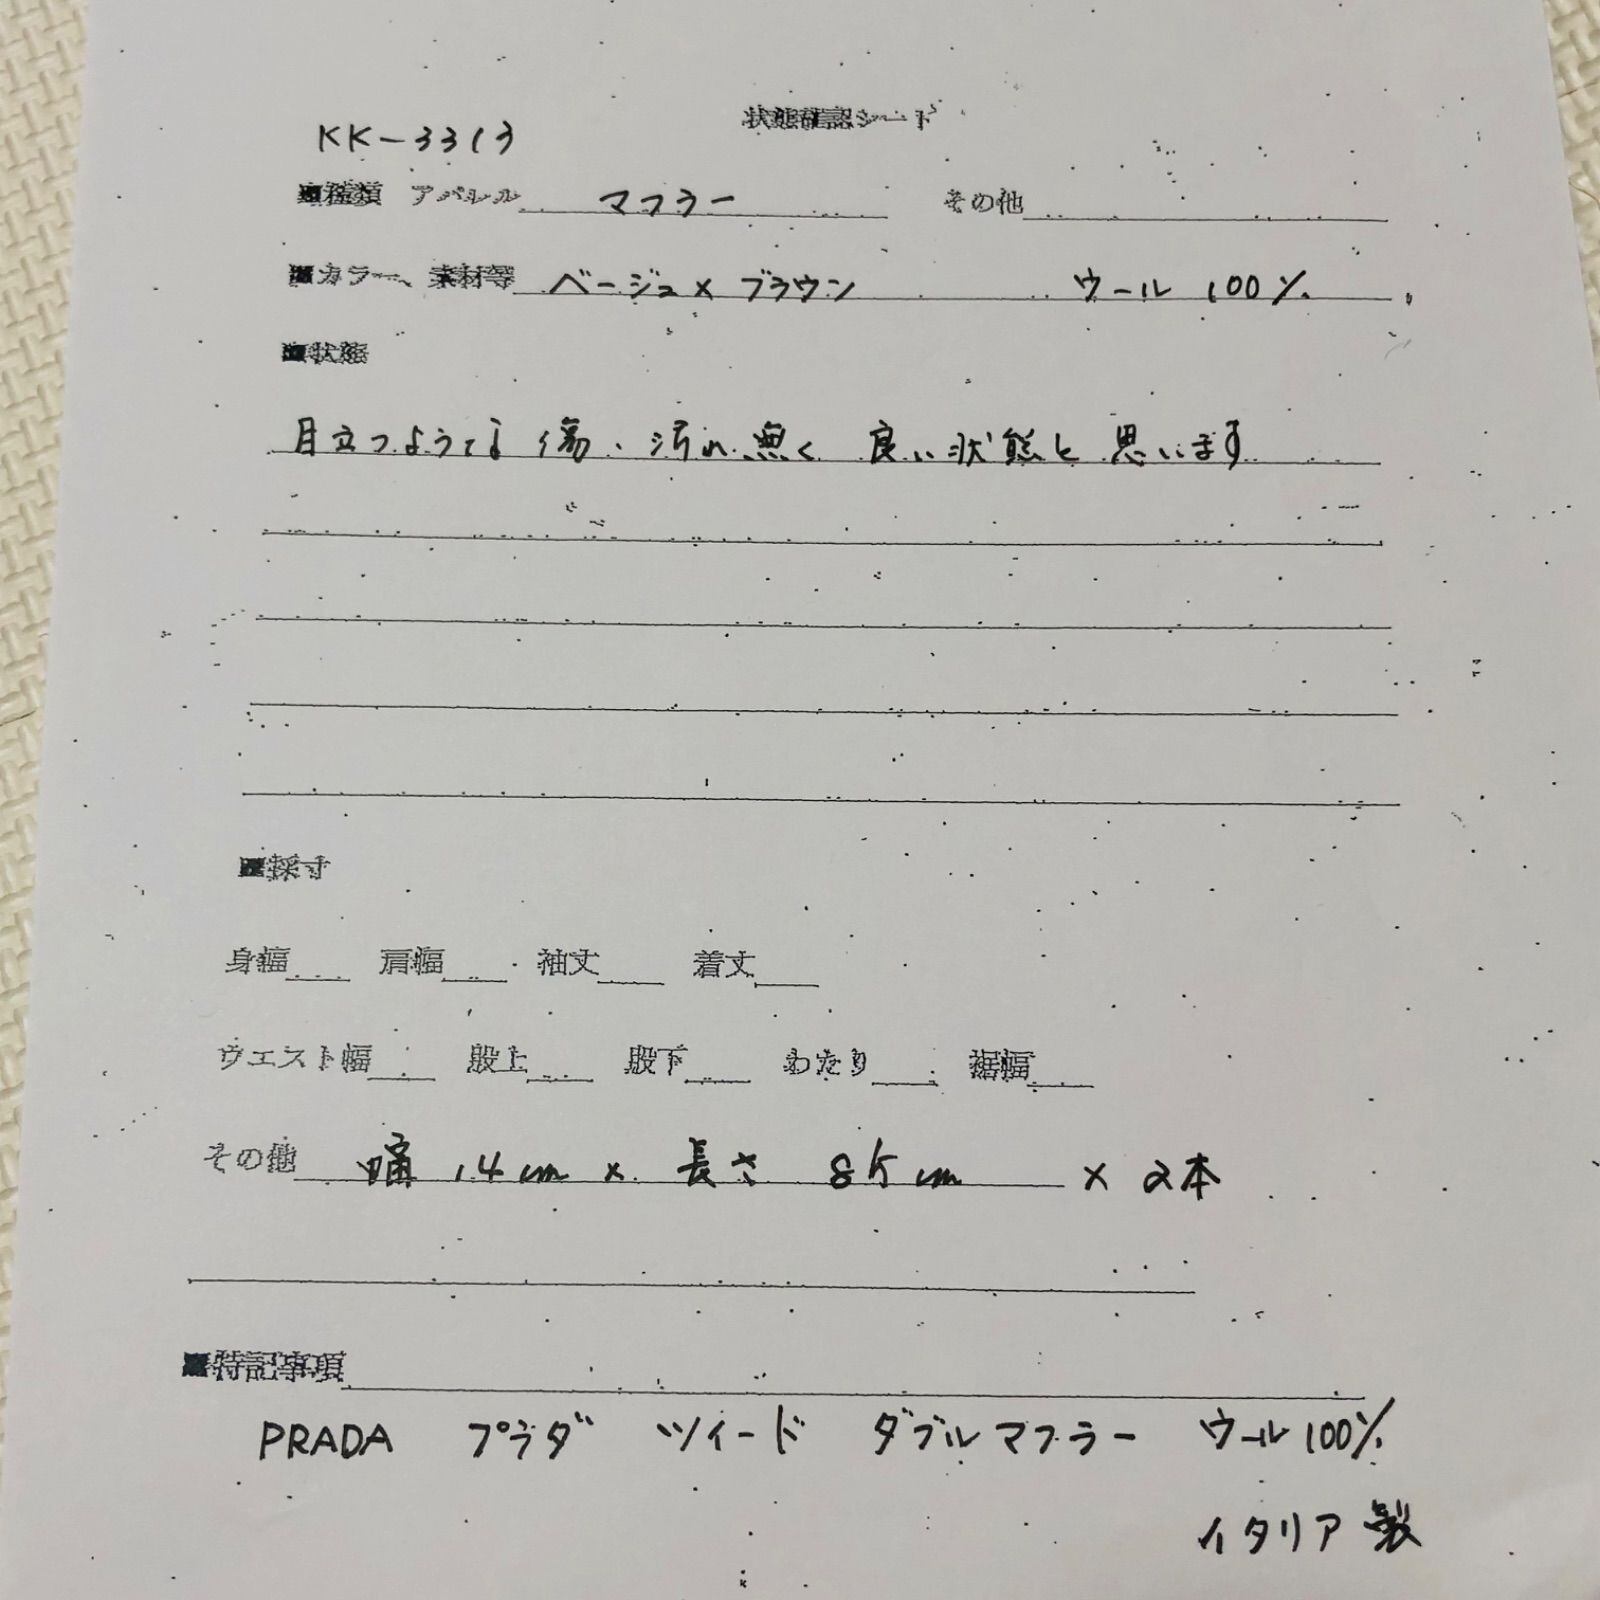 状態確認シート
KK-3313
■種類 アパレル マフラー その他
■カラー、素材等 ベージュ×ブラウン ウール 100%
■状態
目立つような傷・汚れ無く 良い状態と思います
■採寸
身幅 肩幅 袖丈 着丈
ウエスト幅 股上 股下 わたり 裾幅
その他 幅 14cm × 長さ 85cm × 2本
■特記事項
PRADA プラダ ツイード ダブルマフラー ウール100%
イタリア製